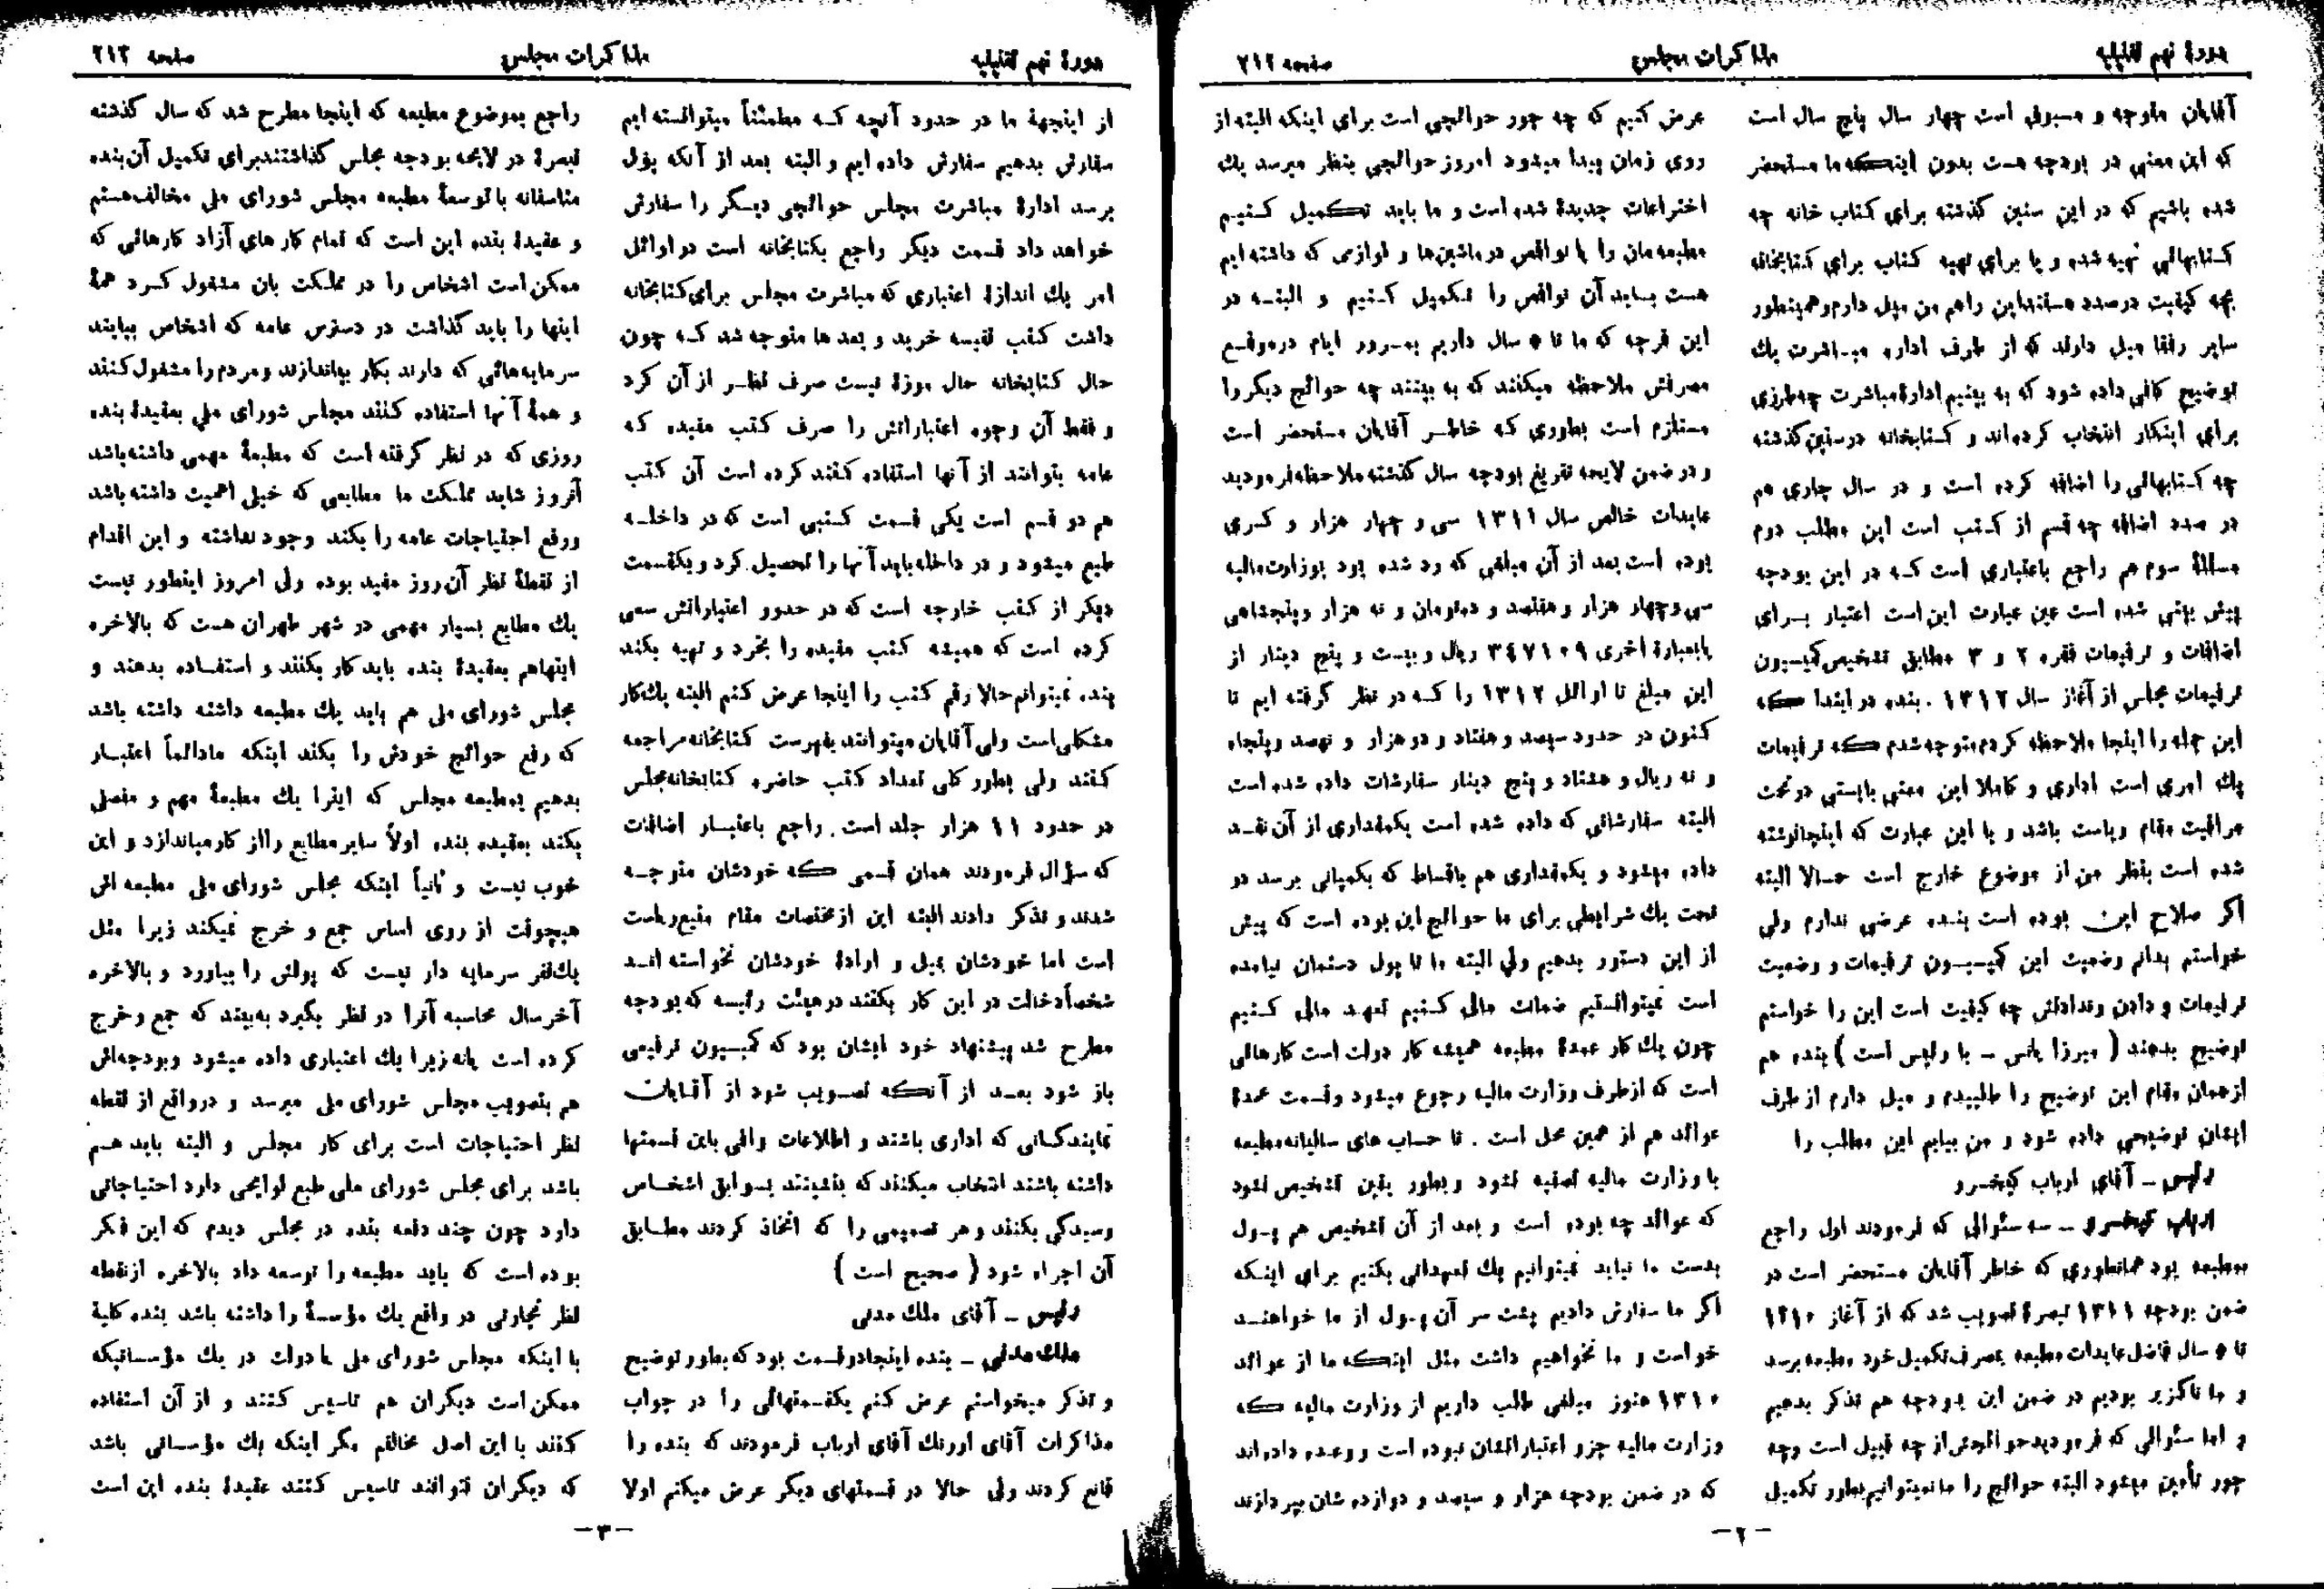 دورهٔ نهم تقنینیه
مذاکرات مجلس
صفحه ۲۱۲
آقایان متوجه و مسبوق است چهار سال پنج سال است
که این معنی در بودجه هست بدون اینکه ما مستحضر
شده باشیم که در این سنین گذشته برای کتاب خانه چه
کتابهائی تهیه شده و یا برای تهیه کتاب برای کتابخانه
بچه کیفیت درصدد هستند این را هم من میل دارم و همینطور
سایر رفقا میل دارند که از طرف اداره مباشرت یک
توضیح کافی داده شود که به بینیم ادارهٔ مباشرت چه طرزی
برای اینکار انتخاب کرده‌اند و کتابخانه در سنین گذشته
چه کتابهائی را اضافه کرده است و در سال جاری هم
در صدد اضافه چه قسم از کتب است این مطلب دوم
مسئلهٔ سوم هم راجع باعتباری است که در این بودجه
پیش بینی شده است عین عبارت این است اعتبار برای
اضافات و ترفیعات فقره ۲ و ۳ مطابق تشخیص کمیسیون
ترفیعات مجلس از آغاز سال ۱۳۱۲ . بنده در ابتدا که
این جمله را اینجا ملاحظه کردم متوجه شدم که ترفیعات
یک امری است اداری و کاملا این معنی بایستی در تحت
مراقبت مقام ریاست باشد و با این عبارت که اینجا نوشته
شده است بنظر من از موضوع خارج است حالا البته
اگر صلاح این بوده است بنده عرضی ندارم ولی
خواستم بدانم وضعیت این کمیسیون ترفیعات و وضعیت
ترفیعات و دادن و ندادنش چه کیفیت است این را خواستم
توضیح بدهند ( میرزا یانس - با رئیس است ) بنده هم
از همان مقام این توضیح را طلبیدم و میل دارم از طرف
ایشان توضیحی داده شود و من بیایم این مطلب را
رئیس - آقای ارباب کیخسرو
ارباب کیخسرو - سه سئوالی که فرمودند اول راجع
بمطبعه بود همانطوری که خاطر آقایان مستحضر است در
ضمن بودجه ۱۳۱۱ تبصرهٔ تصویب شد که از آغاز ۱۳۱۰
تا ۵ سال فاضل عایدات مطبعه بمصرف تکمیل خود مطبعه برسد
و ما ناگزیر بودیم در ضمن این بودجه هم تذکر بدهیم
و اما سئوالی که فرمودید حوائجش از چه قبیل است و چه
جور تأمین میشود البته حوائج را ما نمیتوانیم بطور تکمیل
عرض کنیم که چه جور حوائجی است برای اینکه البته از
روی زمان پیدا میشود امروز حوائجی بنظر میرسد یک
اختراعات جدیدهٔ شده است و ما باید تکمیل کنیم
مطبعه‌مان را یا نواقص در ماشین‌ها و لوازمی که داشته ایم
هست بباید آن نواقص را تکمیل کنیم و البته در
این فرجه که ما تا ۵ سال داریم بمرور ایام در موقع
مصرفش ملاحظه میکنند که به بینند چه حوائج دیگر را
مستلزم است بطوری که خاطر آقایان مستحضر است
و در ضمن لایحه تفریغ بودجه سال گذشته ملاحظه فرمودید
عایدات خالص سال ۱۳۱۱ سی و چهار هزار و کسری
بوده است بعد از آن مبلغی که رد شده بود بوزارت مالیه
سی و چهار هزار و هفتصد و ده تومان و نه هزار و پنجشاهی
یا بعبارة اخری ۳۴۷۱۰۹ ریال و بیست و پنج دینار از
این مبلغ تا اوائل ۱۳۱۲ را که در نظر گرفته ایم تا
کنون در حدود سیصد و هفتاد و دو هزار و نهصد و پنجاه
و نه ریال و هشتاد و پنج دینار سفارشات داده شده است
البته سفارشاتی که داده شده است یکمقداری از آن نقد
داده میشود و یکمقداری هم باقساط که بکمپانی برسد در
تحت یک شرایطی برای ما حوائج این بوده است که پیش
از این دستور بدهیم ولی البته ما تا پول دستمان نیامده
است نمیتوانستیم ضمانت مالی کنیم تعهد مالی کنیم
چون یک کار عمدهٔ مطبعه همیشه کار دولت است کارهائی
است که از طرف وزارت مالیه رجوع میشود و قسمت عمدهٔ
عوائد هم از همین محل است . تا حساب های سالیانه مطبعه
با وزارت مالیه تصفیه نشود و بطور یقین تشخیص نشود
که عوائد چه بوده است و بعد از آن تشخیص هم پول
بدست ما نیاید نمیتوانیم یک تعهداتی بکنیم برای اینکه
اگر ما سفارش دادیم پشت سر آن پول از ما خواهند
خواست و ما نخواهیم داشت مثل اینکه ما از عوائد
۱۳۱۰ هنوز مبلغی طلب داریم از وزارت مالیه که
وزارت مالیه جزو اعتباراتشان نبوده است و وعده داده‌اند
که در ضمن بودجه هزار و سیصد و دوازده شان بپردازند
- ۲ -
دورهٔ نهم تقنینیه
مذاکرات مجلس
صفحه ۲۱۳
از اینجهة ما در حدود آنچه که مطمئناً میتوانسته ایم
سفارش بدهیم سفارش داده ایم و البته بعد از آنکه پول
برسد ادارهٔ مباشرت مجلس حوائجی دیگر را سفارش
خواهد داد قسمت دیگر راجع بکتابخانه است در اوائل
امر یک اندازهٔ اعتباری که مباشرت مجلس برای کتابخانه
داشت کتب نفیسه خرید و بعدها متوجه شد که چون
حال کتابخانه حال موزهٔ نیست صرف نظر از آن کرد
و فقط آن وجوه اعتباراتش را صرف کتب مفیده که
عامه بتوانند از آنها استفاده کنند کرده است آن کتب
هم دو قسم است یکی قسمت کتبی است که در داخله
طبع میشود و در داخله باید آنها را تحصیل کرد و یکقسمت
دیگر از کتب خارجه است که در حدود اعتباراتش سعی
کرده است که همیشه کتب مفیده را بخرد و تهیه بکند
بنده نمیتوانم حالا رقم کتب را اینجا عرض کنم البته یک کار
مشکلی است ولی آقایان میتوانند بفهرست کتابخانه مراجعه
کنند ولی بطور کلی تعداد کتب حاضره کتابخانه مجلس
در حدود ۱۱ هزار جلد است. راجع باعتبار اضافات
که سؤال فرمودند همان قسمی که خودشان متوجه
شدند و تذکر دادند البته این از مختصات مقام منیع ریاست
است اما خودشان بمیل و ارادهٔ خودشان نخواسته اند
شخصاً دخالت در این کار بکنند در هیئت رئیسه که بودجه
مطرح شد پیشنهاد خود ایشان بود که کمیسیون ترفیعی
باز شود بعد از آنکه تصویب شود از آقایان
نمایندگانی که اداری باشند و اطلاعات وافی باین قسمتها
داشته باشند انتخاب میکنند که بنشینند بسوابق اشخاص
رسیدگی بکنند و هر تصمیمی را که اتخاذ کردند مطابق
آن اجراء شود ( صحیح است )
رئیس - آقای ملک مدنی
ملک مدنی - بنده اینجا دو قسمت بود که بطور توضیح
و تذکر میخواستم عرض کنم یکقسمتهائی را در جواب
مذاکرات آقای اورنگ آقای ارباب فرمودند که بنده را
قانع کردند ولی حالا در قسمتهای دیگر عرض میکنم اولا
راجع بموضوع مطبعه که اینجا مطرح شد که سال گذشته
تبصرهٔ در لایحه بودجه مجلس گذاشتند برای تکمیل آن بنده
متاسفانه با توسعهٔ مطبعه مجلس شورای ملی مخالف هستم
و عقیدهٔ بنده این است که تمام کار های آزاد کارهائی که
ممکن است اشخاص را در مملکت بان مشغول کرد همهٔ
اینها را باید گذاشت در دسترس عامه که اشخاص بیایند
سرمایه‌هائی که دارند بکار بیاندازند و مردم را مشغول کنند
و همهٔ آنها استفاده کنند مجلس شورای ملی بعقیدهٔ بنده
روزی که در نظر گرفته است که مطبعهٔ مهمی داشته باشد
آنروز شاید مملکت ما مطابعی که خیلی اهمیت داشته باشد
ورفع احتیاجات عامه را بکند وجود نداشته و این اقدام
از نقطهٔ نظر آن روز مفید بوده ولی امروز اینطور نیست
یک مطابع بسیار مهمی در شهر طهران هست که بالاخره
اینهاهم بعقیدهٔ بنده باید کار بکنند و استفاده بدهند و
مجلس شورای ملی هم باید یک مطبعه داشته داشته باشد
که رفع حوائج خودش را بکند اینکه مادائماً اعتبار
بدهیم بمطبعه مجلس که اینرا یک مطبعهٔ مهم و مفصلی
بکند بعقیده بنده اولاً سایر مطابع را از کار میاندازد و این
خوب نیست و ثانیاً اینکه مجلس شورای ملی مطبعه اش
هیچوقت از روی اساس جمع و خرج نمیکند زیرا مثل
یک نفر سرمایه دار نیست که پولش را بیاورد و بالاخره
آخر سال محاسبه آنرا در نظر بگیرد به بیند که جمع و خرج
کرده است یا نه زیرا یک اعتباری داده میشود و بودجه‌اش
هم بتصویب مجلس شورای ملی میرسد و در واقع از نقطه
نظر احتیاجات است برای کار مجلس و البته باید هم
باشد برای مجلس شورای ملی طبع لوایحی دارد احتیاجاتی
دارد چون چند دفعه بنده در مجلس دیدم که این فکر
بوده است که باید مطبعه را توسعه داد بالاخره از نقطه
نظر تجارتی در واقع یک مؤسسهٔ را داشته باشد بنده کلیةً
با اینکه مجلس شورای ملی یا دولت در یک مؤسساتیکه
ممکن است دیگران هم تاسیس کنند و از آن استفاده
کنند با این اصل مخالفم مگر اینکه یک مؤسساتی باشد
که دیگران نتوانند تاسیس کنند عقیدهٔ بنده این است
- ۳ -